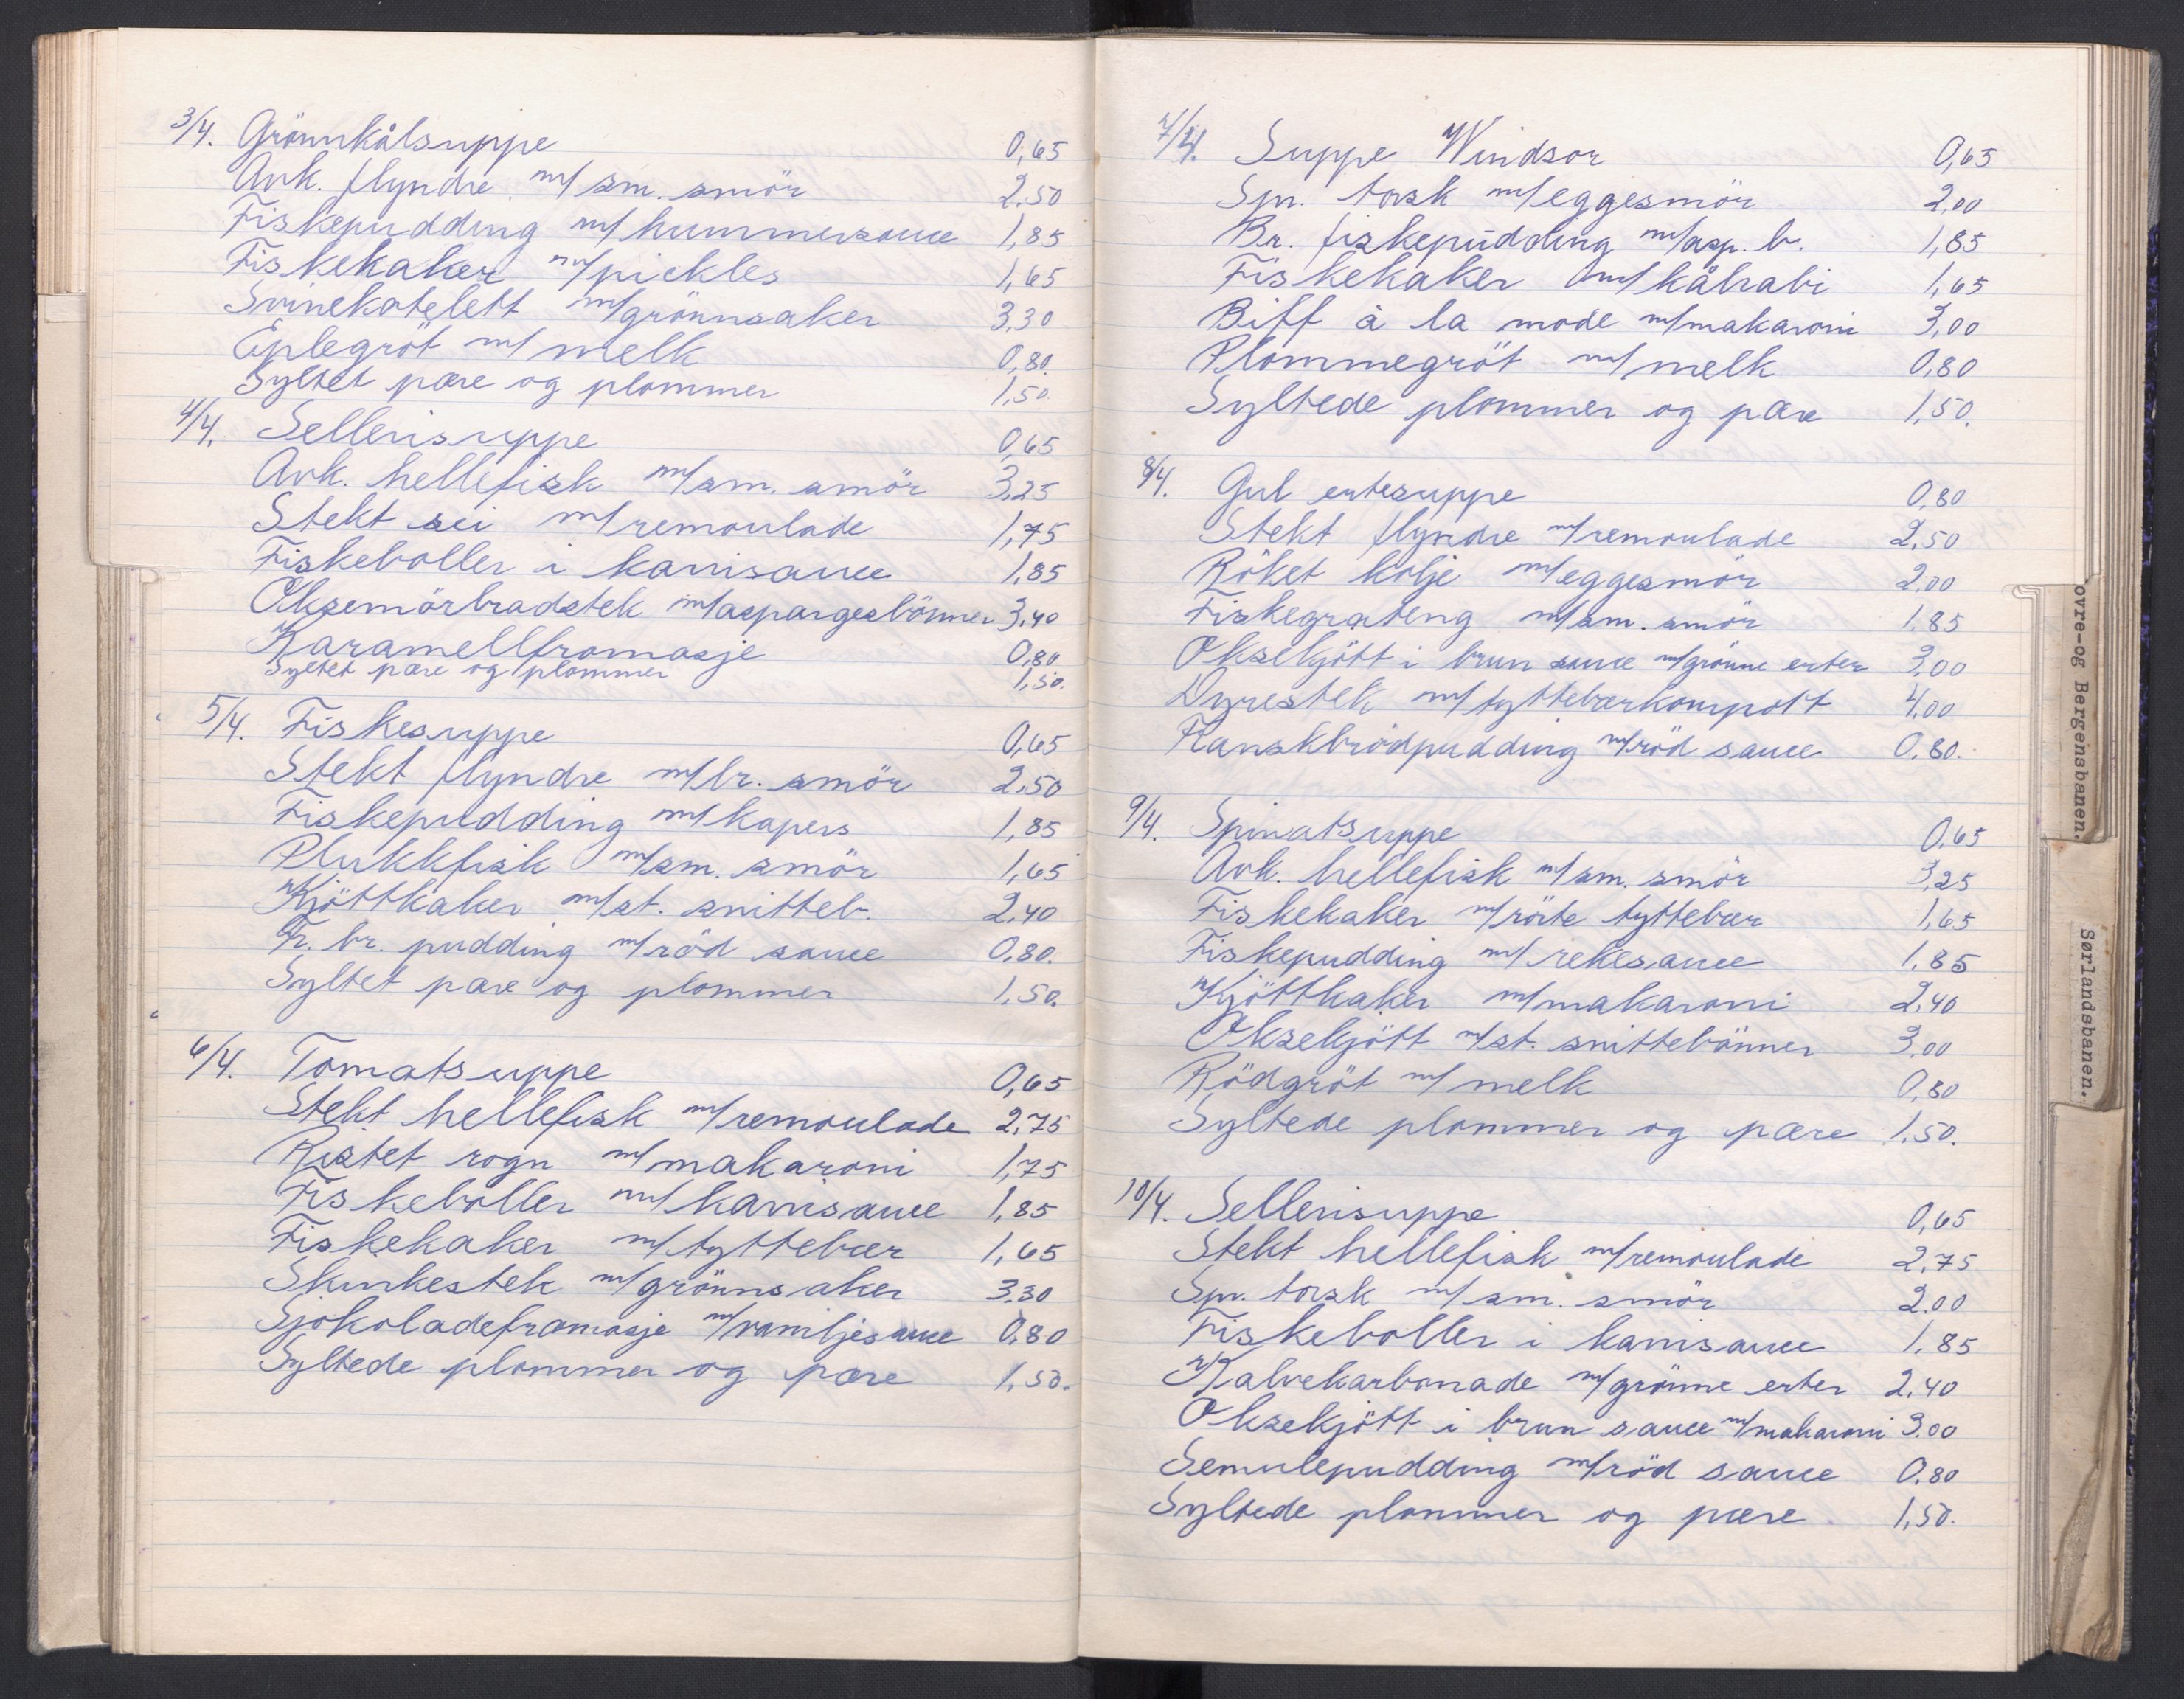 3/4. Grönnkålsuppe 0,65
Avk. flyndre m/ sm. smör 2,50
Fiskepudding m/ hummersauce 1,85
Fiskekaker m/ pickles 1,65
Svinekotelett m/ grönnsaker 3,30
Eplegröt m/ melk 0,80.
Syltet pære og plommer 1,50.
4/4. Sellerisuppe 0,65
Avk. hellefisk m/ sm. smör 3,25
Stekt sei m/ remoulade 1,75
Fiskeboller i karrisauce 1,85
Oksemörbradstek m/ aspargesbönner 3,40
Karamellfromasje 0,80
Syltet pære og plommer 1,50.
5/4. Fiskesuppe 0,65
Stekt flyndre m/ br. smör 2,50
Fiskepudding m/ kapers 1,85
Plukkfisk m/ sm. smör 1,65
Kjöttkaker m/ st. snitteb. 2,40
Fr. br. pudding m/ röd sauce 0,80.
Syltet pære og plommer 1,50.
6/4. Tomatsuppe 0,65
Stekt hellefisk m/ remoulade 2,75
Ristet rogn m/ makaroni 1,75
Fiskeboller m/ karrisauce 1,85
Fiskekaker m/ tyttebær 1,65
Skinkestek m/ grönnsaker 3,30
Sjokoladefromasje m/ vaniljesauce 0,80
Syltede plommer og pære 1,50.
7/4. Suppe Windsor 0,65
Spr. torsk m/ eggesmör 2,00
Br. fiskepudding m/ asp. b. 1,85
Fiskekaker m/ kålrabi 1,65
Biff à la mode m/ makaroni 3,00
Plommegröt m/ melk 0,80
Syltede plommer og pære 1,50.
8/4. Gul ertesuppe 0,80
Stekt flyndre m/ remoulade 2,50
Röket kolje m/ eggesmör 2,00
Fiskegrateng m/ sm. smör 1,85
Oksekjött i brun sauce m/ grönne erter 3,00
Dyrestek m/ tyttebærkompott 4,00
Franskbrödpudding m/ röd sauce 0,80.
9/4. Spinatsuppe 0,65
Avk. hellefisk m/ sm. smör 3,25
Fiskekaker m/ rörte tyttebær 1,65
Fiskepudding m/ rekesauce 1,85
Kjöttkaker m/ makaroni 2,40
Oksekjött m/ st. snittebönner 3,00
Rödgröt m/ melk 0,80
Syltede plommer og pære 1,50.
10/4. Sellerisuppe 0,65
Stekt hellefisk m/ remoulade 2,75
Spr. torsk m/ sm. smör 2,00
Fiskeboller i karrisauce 1,85
Kalvekarbonade m/ grönne erter 2,40
Oksekjött i brun sauce m/ makaroni 3,00
Semulepudding m/ röd sauce 0,80
Syltede plommer og pære 1,50.
ovre-og Bergensbanen.
Sørlandsbanen.